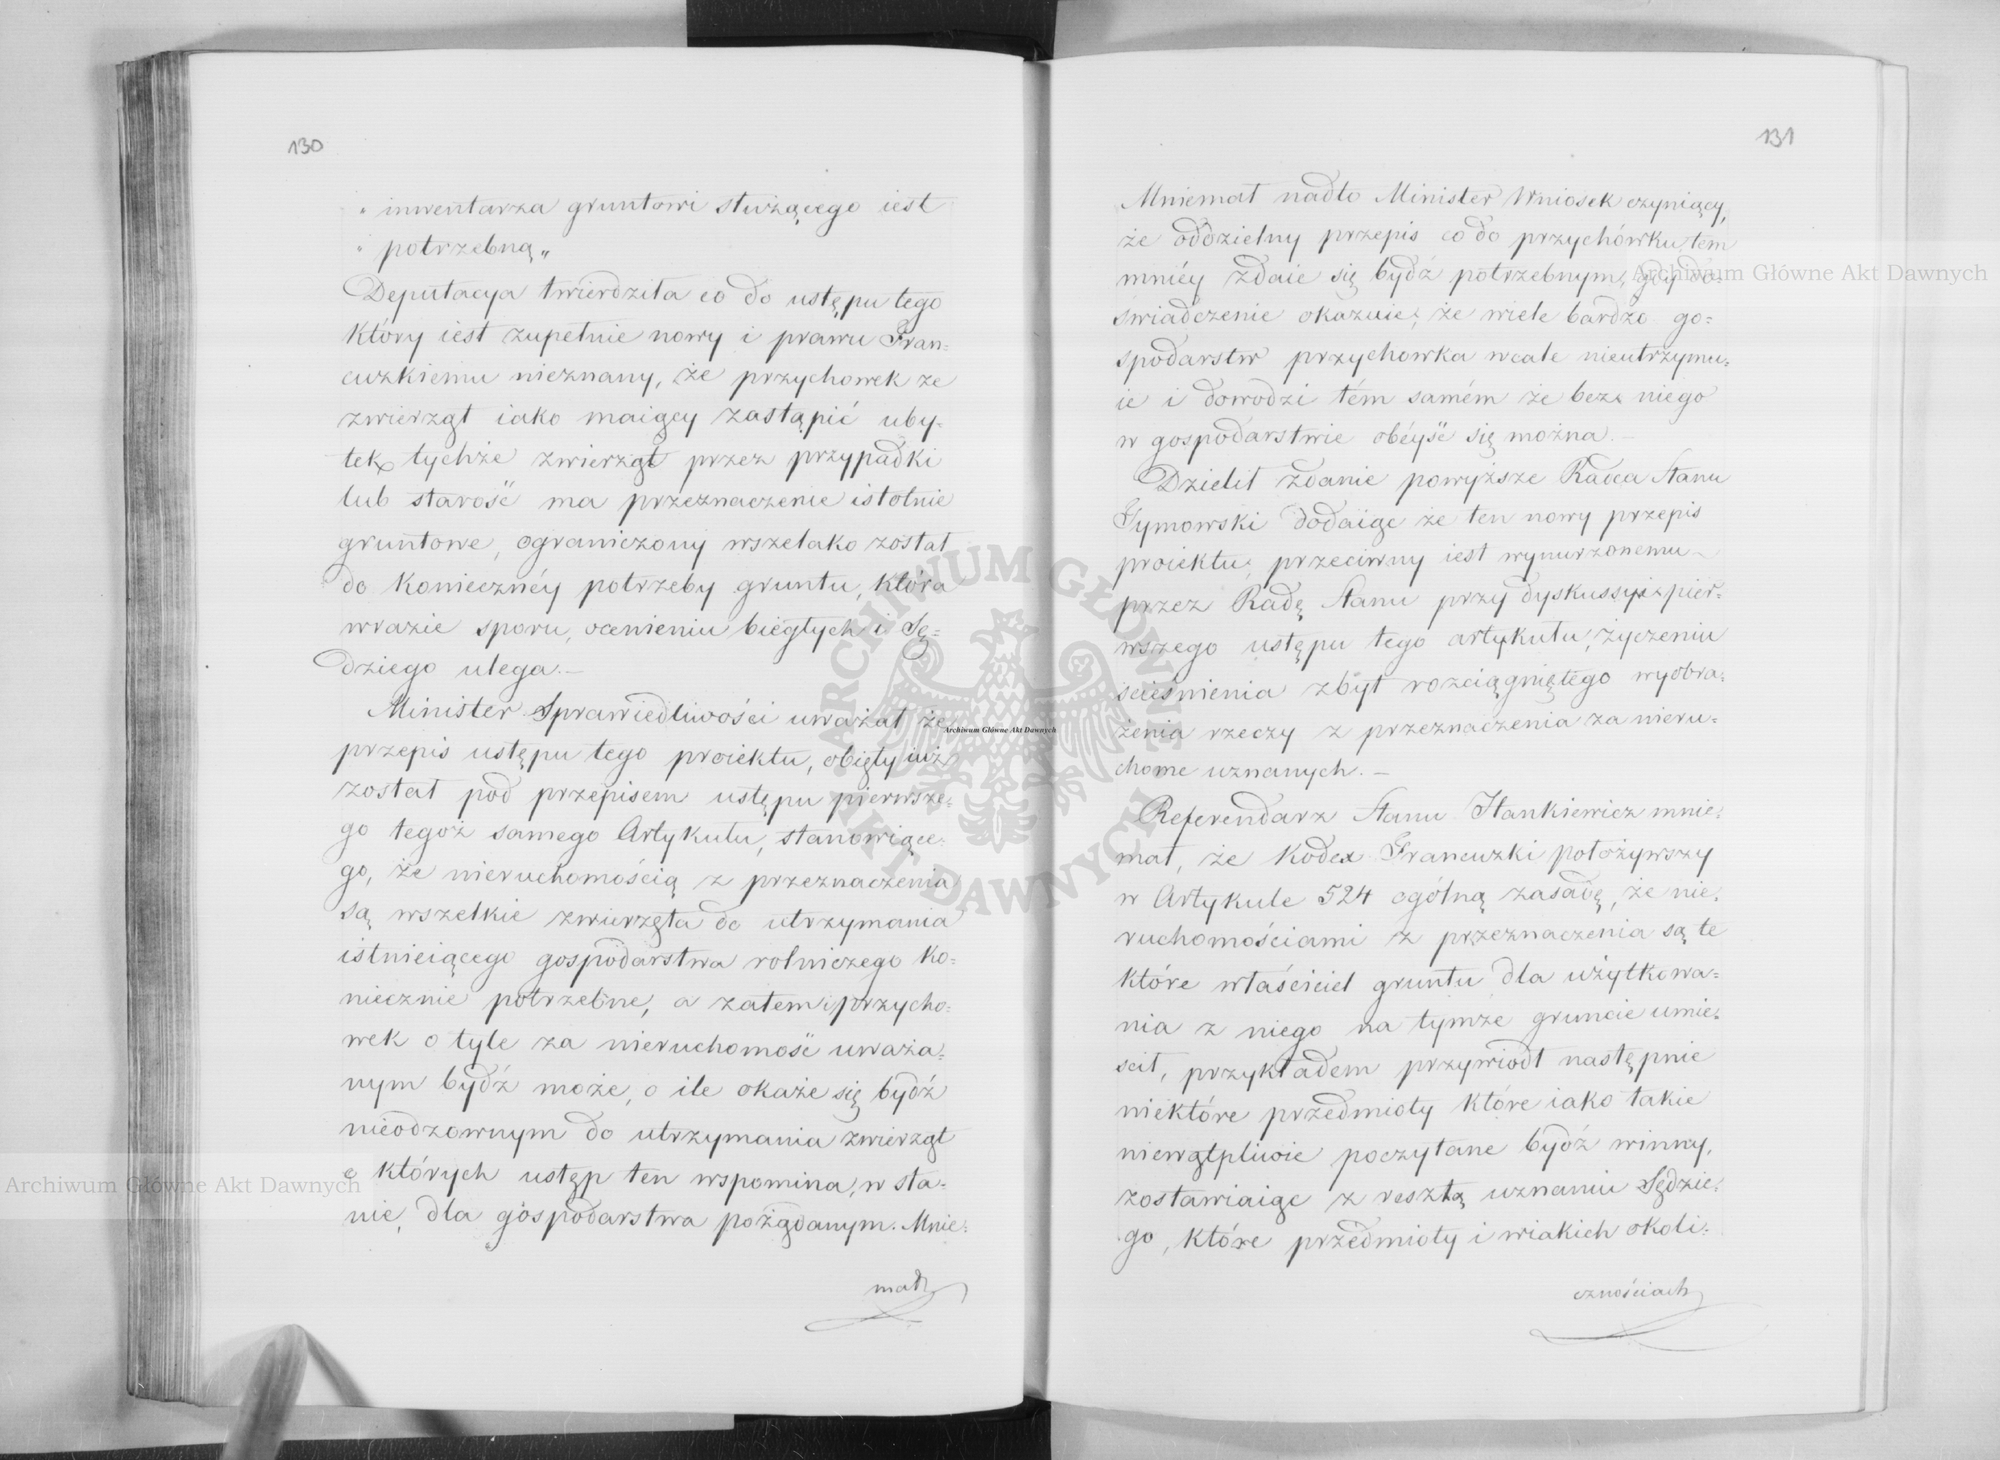 130
„ inwentarza gruntowi służącego iest
„ potrzebną „
Deputacya twierdziła co do ustępu tego
który iest zupełnie nowy i prawu Fran=
cuzkiemu nieznany, że przychowek ze
zwierząt iako maiący zastąpić uby-
tek tychże zwierząt przez przypadki
lub starość ma przeznaczenie istotnie
gruntowe, ograniczony wszelako został
do konieczney potrzeby gruntu, która
wrazie sporu, ocenieniu biegłych i Sę=
dziego ulega.—
Minister Sprawiedliwości uważał że
przepis ustępu tego proiektu, obięty iuż
został pod przepisem ustępu pierwsze=
go tegoż samego Artykułu, stanowiące=
go, że nieruchomością z przeznaczenia
są wszelkie zwierzęta do utrzymania
istnieiącego gospodarstwa rolniczego ko=
niecznie potrzebne, a zatem i przycho=
wek o tyle za nieruchomość uważa=
nym bydź może, o ile okaże się bydź
nieodzownym do utrzymania zwierząt
o których ustęp ten wspomina, w sta=
nie, dla gospodarstwa pożądanym. Mnie=
mał
131
Mniemał nadto Minister Wniosek czyniący,
że oddzielny przepis co do przychówku, tém
mniéy zdaie się bydź potrzebnym, gdy do=
świadczenie okazuie, że wiele bardzo go=
spodarstw przychowka wcale nieutrzymu=
ie i dowodzi tém samém że bez niego
w gospodarstwie obéyść się można.—
Dzielił zdanie powyższe Radca Stanu
Tymowski dodaiąc że ten nowy przepis
proiektu, przeciwny iest wynurzonemu
przez Radę Stanu przy dyskussyi pier=
wszego ustępu tego artykułu, życzeniu
ścieśnienia zbyt rozciągniętego wyobra=
żenia rzeczy z przeznaczenia za nieru=
chome uznanych.—
Referendarz Stanu Hankiewicz mnie=
mał, że Kodex Francuzki położywszy
w Artykule 524 ogólną zasadę, że nie=
ruchomościami z przeznaczenia są te
które właściciel gruntu dla użytkowa=
nia z niego na tymże gruncie umie=
scił, przykładem przywiódł następnie
niektóre przedmioty które iako takie
niewątpliwie poczytane bydź winny,
zostawiaiąc z resztą uznaniu Sędzie=
go, które przedmioty i wiakich okoli=
cznościach
Archiwum Główne Akt Dawnych
Archiwum Główne Akt Dawnych
Archiwum Główne Akt Dawnych
ARCHIWUM GŁÓWNE AKT DAWNYCH